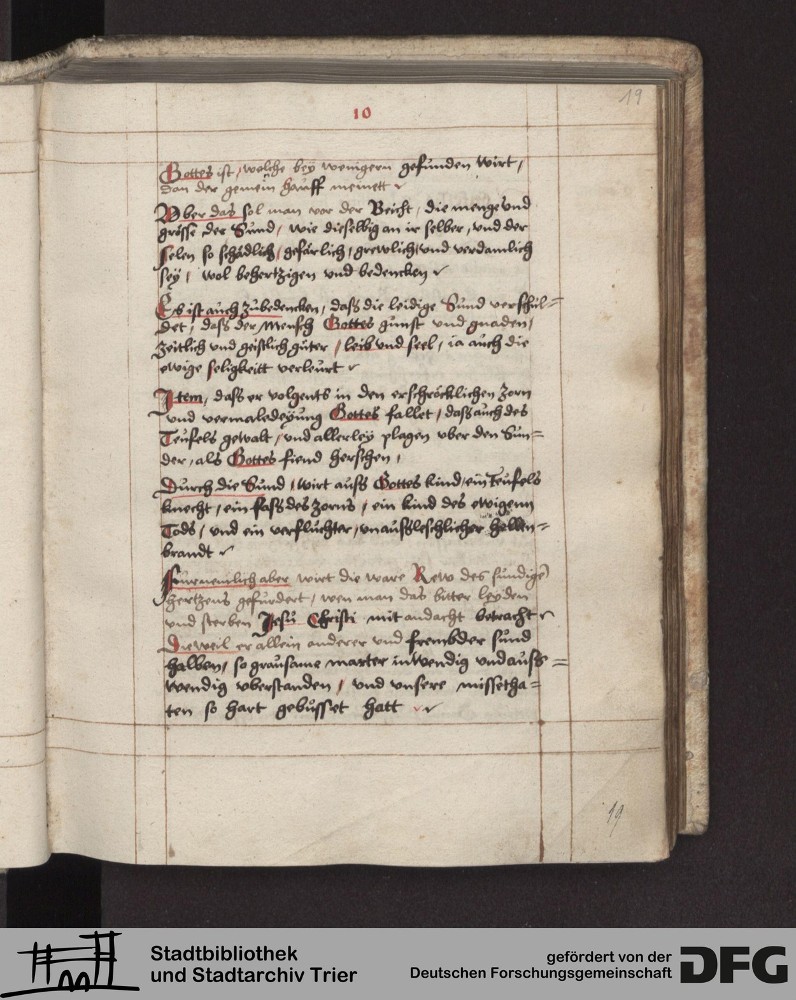 19
10
Gottes ist, wolche bey wenigern gefunden wirt,
dan der gemein hauff meinett
Uber das sol man vor der Beicht, die menge und
grösse der Sund, wie dieselbig an ir selber, und der
selen so schädlich, gefärlich, grewlich, und verdamlich
sey, wol behertzigen und bedencken
Es ist auch zubedencken, dass die leidige Sund verschul=
det, dass der Mensch Gottes gunst und gnaden,
zeitlich und geistlich güter, leib und seel, ia auch die
ewige seligkeitt verleurt
Item, dass er volgents in den erschröcklichen zorn
und vermaledeyung Gottes fallet, dass auch des
Teufels gewalt, und allerley plagen uber den Sun=
der, als Gottes fiend herschen,
Durch die Sund, wirt auss Gottes kind, ein Teufels
knecht, ein fass des zorns, ein kind des ewigenn
Tods, und ein verfluchter, unaussleschlicher hellen=
brandt
Fürnemlich aber wirt die ware Rew des sundigē
hertzens gefurdert, wen man das bitter leyden
und sterben Jesu Christi mit andacht betracht
Dieweil er allein anderer und frembder sund
halben, so grausame marter inwendig und auss=
wendig uberstanden, und unsere missetha=
ten so hart gebüsset hatt
19
Stadtbibliothek
und Stadtarchiv Trier
gefördert von der
Deutschen Forschungsgemeinschaft
DFG